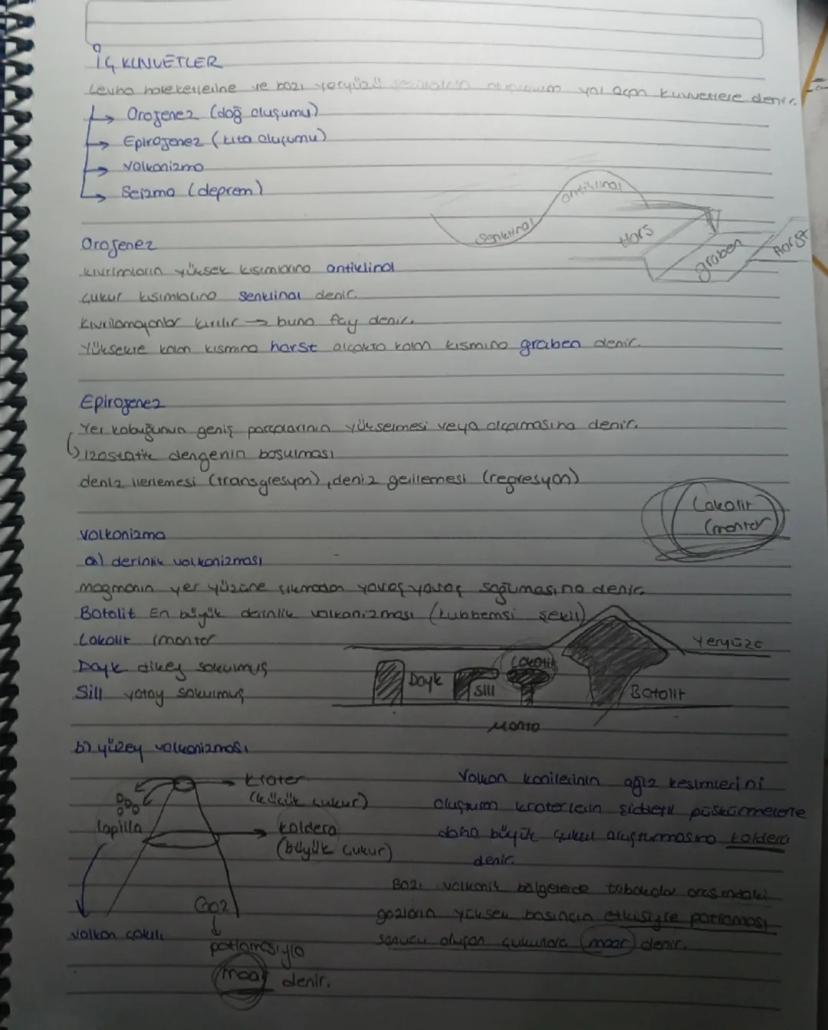 İÇ KUVVETLER
Levha hareketlerine ve bazı yeryüzü yol açan kuvvetlere denir.
→ Orojenez (dağ oluşumu)
→ Epirojenez (kıta oluşumu)
→ Volkanizma
→ Seizma (deprem)
senklinal antiklinal
Hors graben Horst
Orojenez
kıvrımların yüksek kısımlarına antiklinal
çukur kısımlarına senklinal denir.
kıvrılamayanlar kırılır → buna fay denir.
Yüksekte kalan kısmına horst alçakta kalan kısmına graben denir.
Epirojenez
Yer kabuğunun geniş parçalarının yükselmesi veya alçalmasına denir.
izostatik dengenin bozulması
deniz ilerlemesi (transgresyon), deniz gerilemesi (regresyon)
Lakolit
(mantar)
Volkanizma
a) derinlik volkanizması
magmanın yer yüzüne çıkmadan yavaş yavaş soğumasına denir.
Batolit En büyük derinlik volkanizması (kubbemsi şekil)
Lakolit (mantar
Dayk dikey sokulmuş
Sill yatay sokulmuş
Yeryüzü
Dayk Sill Lakolit Batolit
Manto
b) yüzey volkanizması
krater
(küçük çukur)
lapilla
kaldera
(büyük çukur)
volkan çakılı
Gaz
patlamasıyla
maar denir.
Volkan konilerinin ağız kesimlerini
oluşturan kraterlerin şiddetli püskürmelerle
daha büyük çukur oluşturmasına kaldera
denir.
Bazı volkanik bölgelerde tabakalar arasındaki
gazların yüksek basıncın etkisiyle patlaması
sonucu oluşan çukurlara maar denir.